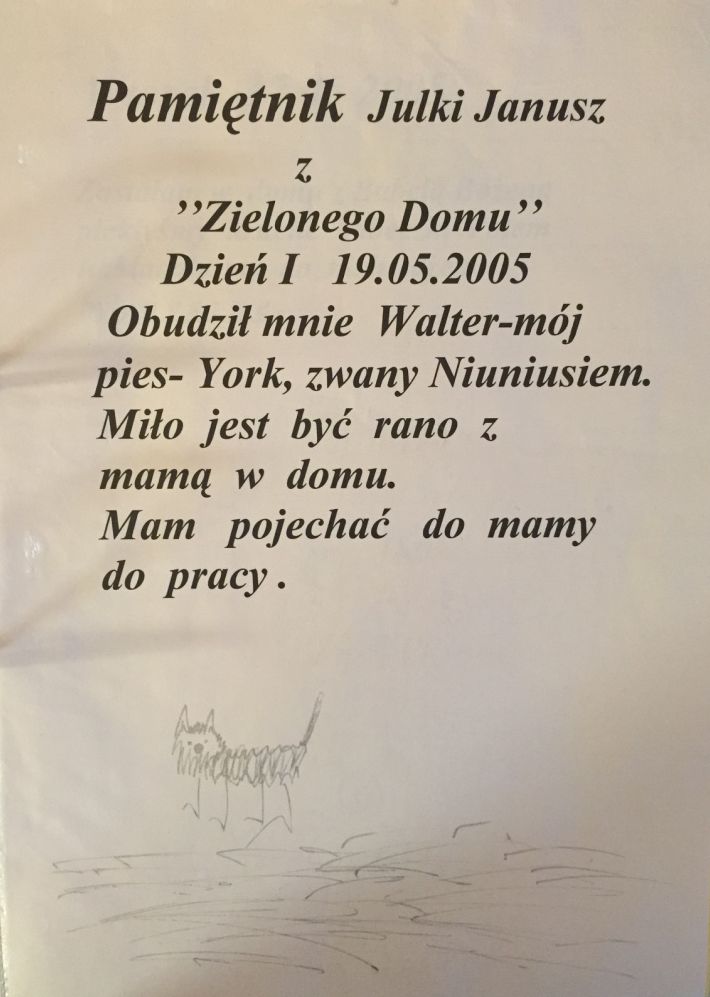 Pamiętnik Julki Janusz
z
’’Zielonego Domu’’
Dzień I 19.05.2005
Obudził mnie Walter-mój
pies- York, zwany Niuniusiem.
Miło jest być rano z
mamą w domu.
Mam pojechać do mamy
do pracy .